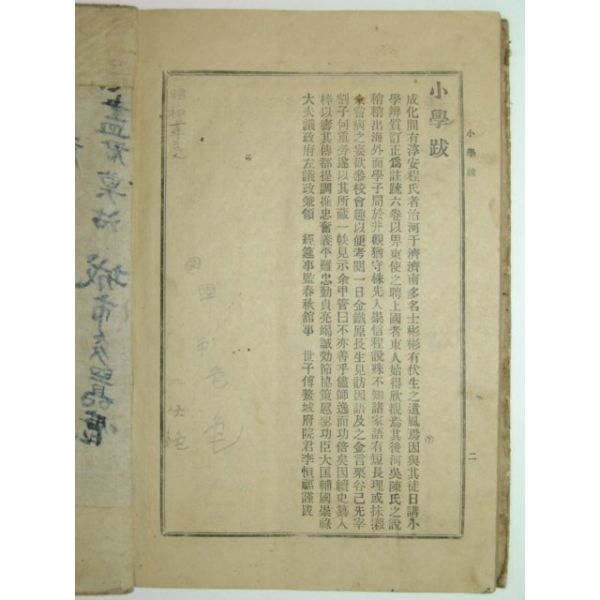 小學跋
成化間有淳安程氏者治河于濟濟南多名士彬彬有伏生之遺風焉因與其徒日講小
學辨質訂正爲註疏六卷以畀東使之聘上國者東人始得欣覩焉其後河吳陳氏之說
稍稍出海外而學子局於井觀猶守株先入崇信程說殊不知諸家語有短長理或抹摋
余嘗病之妄欲叅校會趣以便考閱一日金鐵原長生見訪因語及之金言栗谷已先宰
割子何重勞遂以其所藏一帙見示余甲管曰不亦善乎儘師逸而功倍矣因續史募入
梓以壽其傳都提調推忠奮義平難忠勤貞亮竭誠効節協策扈聖功臣大匡輔國崇祿
大夫議政府左議政兼領 經筵事監春秋館事 世子傅鰲城府院君李恒福謹跋
小學跋
二
昭和
城市